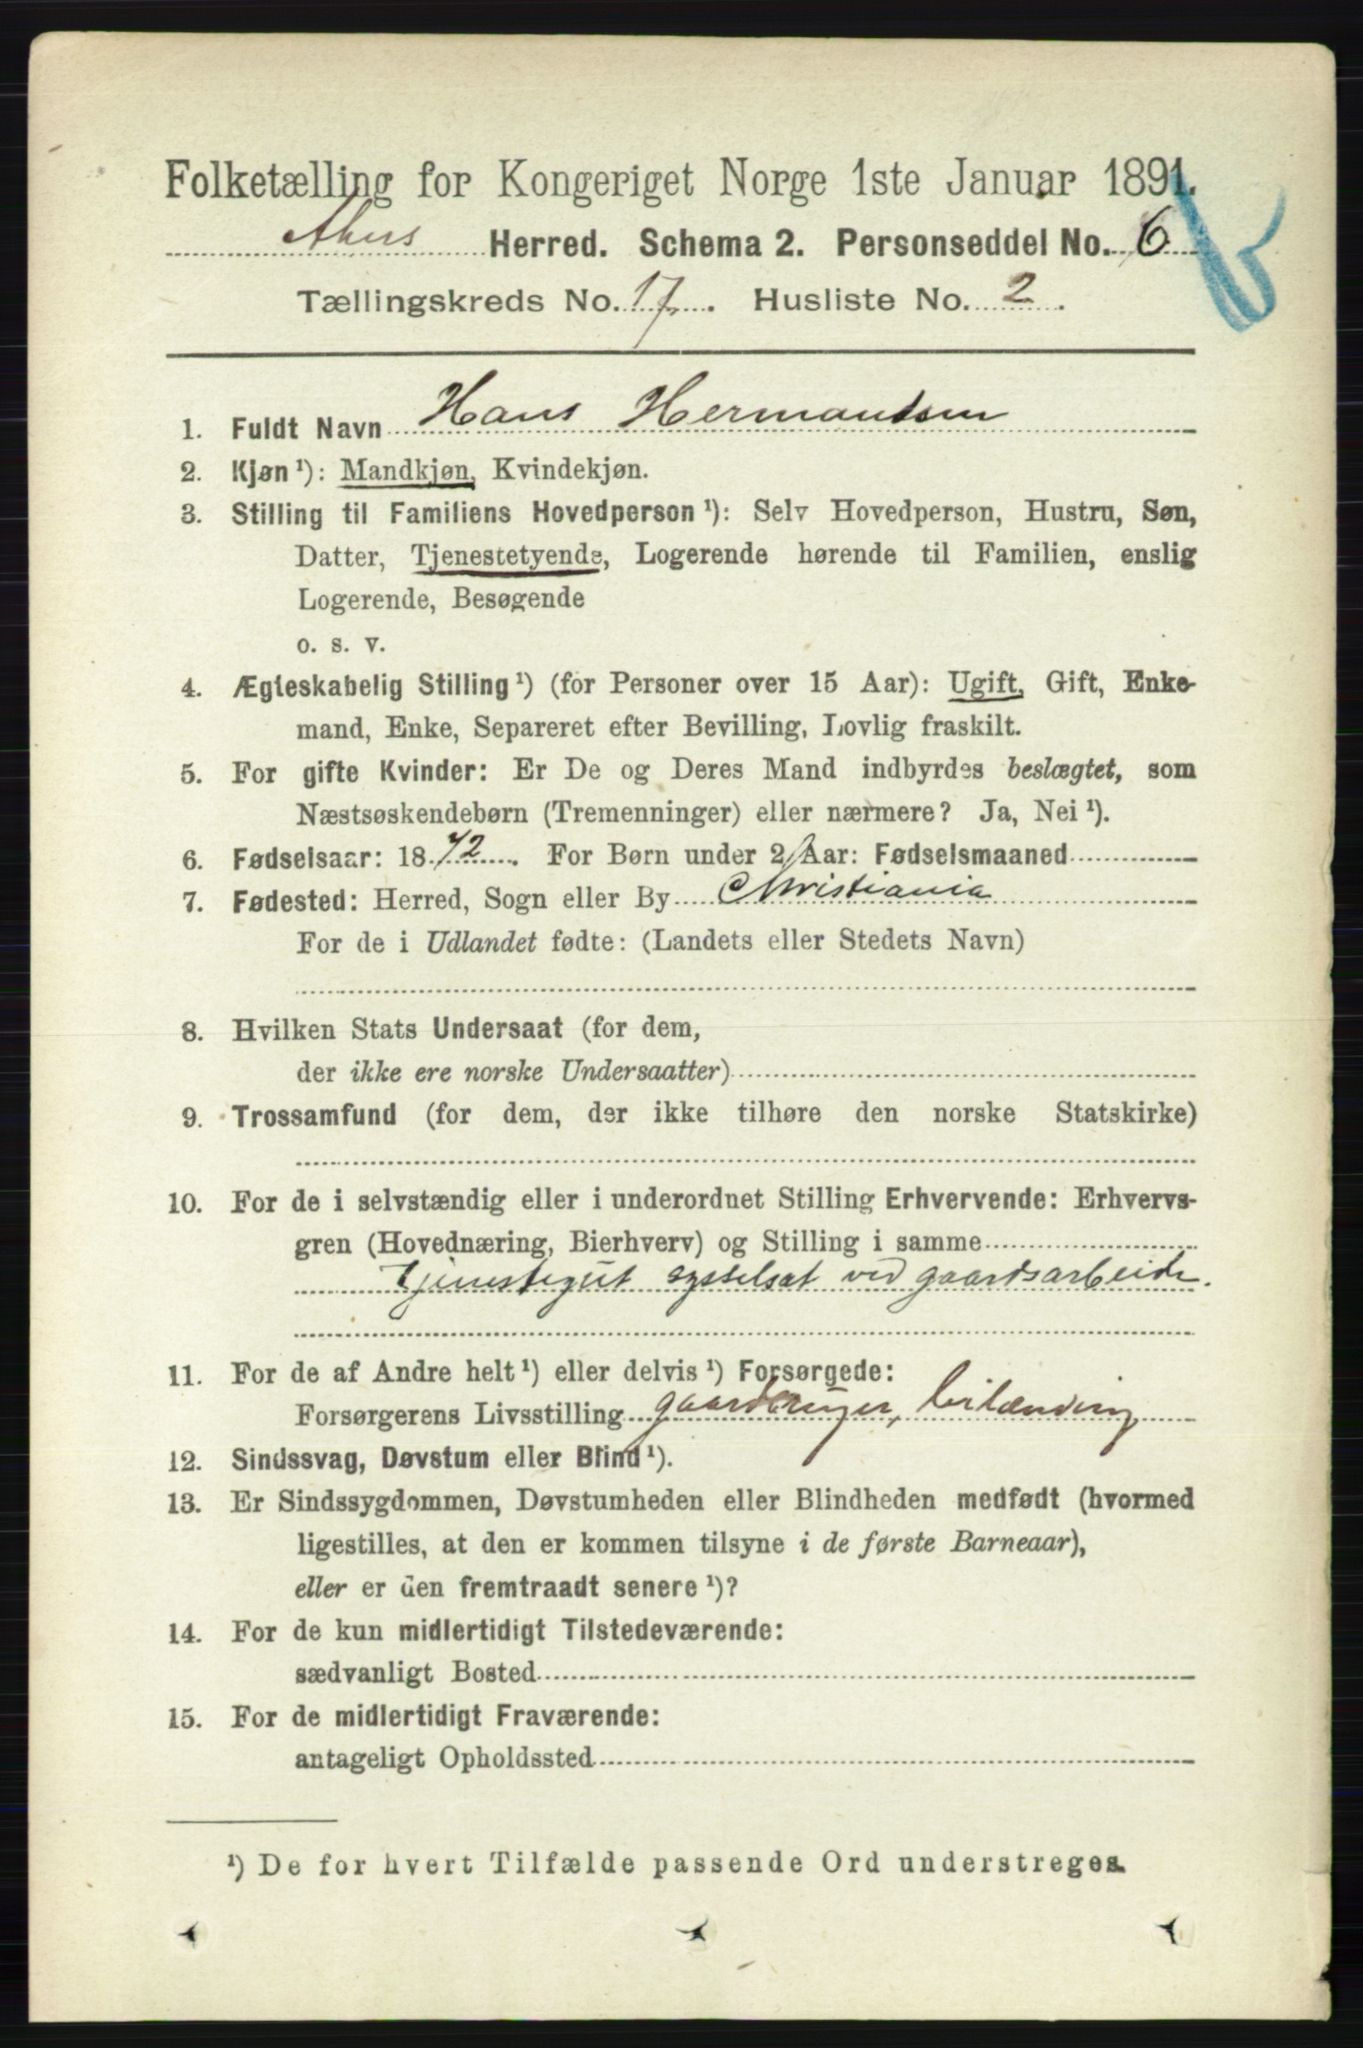 Folketælling for Kongeriget Norge 1ste Januar 1891.
Akers Herred. Schema 2. Personseddel No. 6
Tællingskreds No. 17. Husliste No. 2.
1. Fuldt Navn Hans Hermansen
2. Kjøn ¹): Mandkjøn, Kvindekjøn.
3. Stilling til Familiens Hovedperson ¹): Selv Hovedperson, Hustru, Søn,
Datter, Tjenestetyende, Logerende hørende til Familien, enslig
Logerende, Besøgende
o. s. v.
4. Ægteskabelig Stilling ¹) (for Personer over 15 Aar): Ugift, Gift, Enke-
mand, Enke, Separeret efter Bevilling, Lovlig fraskilt.
5. For gifte Kvinder: Er De og Deres Mand indbyrdes beslægtet, som
Næstsøskendebørn (Tremenninger) eller nærmere? Ja, Nei ¹).
6. Fødselsaar: 1872. For Børn under 2 Aar: Fødselsmaaned
7. Fødested: Herred, Sogn eller By Christiania
For de i Udlandet fødte: (Landets eller Stedets Navn)
8. Hvilken Stats Undersaat (for dem,
der ikke ere norske Undersaatter)
9. Trossamfund (for dem, der ikke tilhøre den norske Statskirke)
10. For de i selvstændig eller i underordnet Stilling Erhvervende: Erhvervs-
gren (Hovednæring, Bierhverv) og Stilling i samme
Tjenestegut sysselsat ved gaardsarbeide.
11. For de af Andre helt ¹) eller delvis ¹) Forsørgede:
Forsørgerens Livsstilling gaardbruger,
12. Sindssvag, Døvstum eller Blind ¹).
13. Er Sindssygdommen, Døvstumheden eller Blindheden medfødt (hvormed
ligestilles, at den er kommen tilsyne i de første Barneaar),
eller er den fremtraadt senere ¹)?
14. For de kun midlertidigt Tilstedeværende:
sædvanligt Bosted
15. For de midlertidigt Fraværende:
antageligt Opholdssted
¹) De for hvert Tilfælde passende Ord understreges.